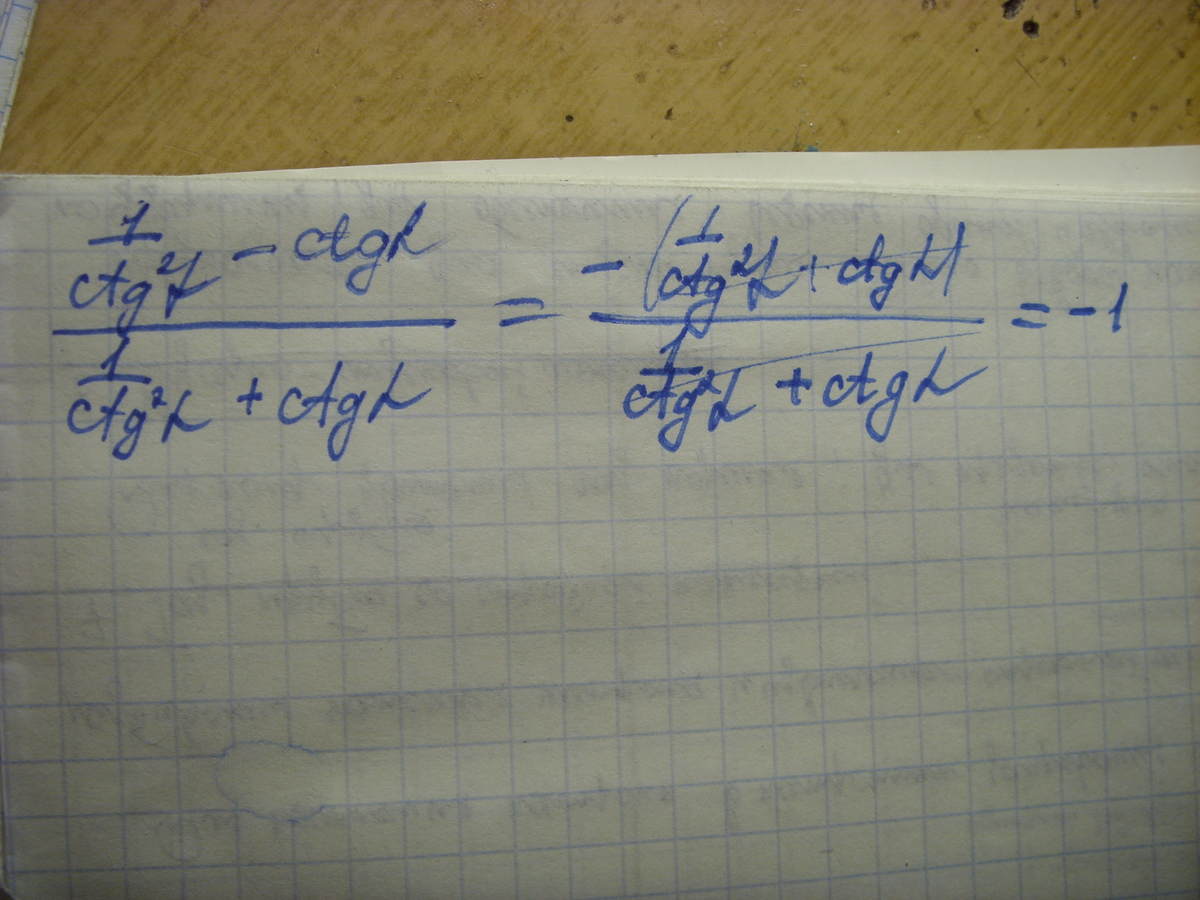 1/ctg²α - ctgα / 1/ctg²α + ctgα = -(1/ctg²α + ctgα) / 1/ctg²α + ctgα = -1